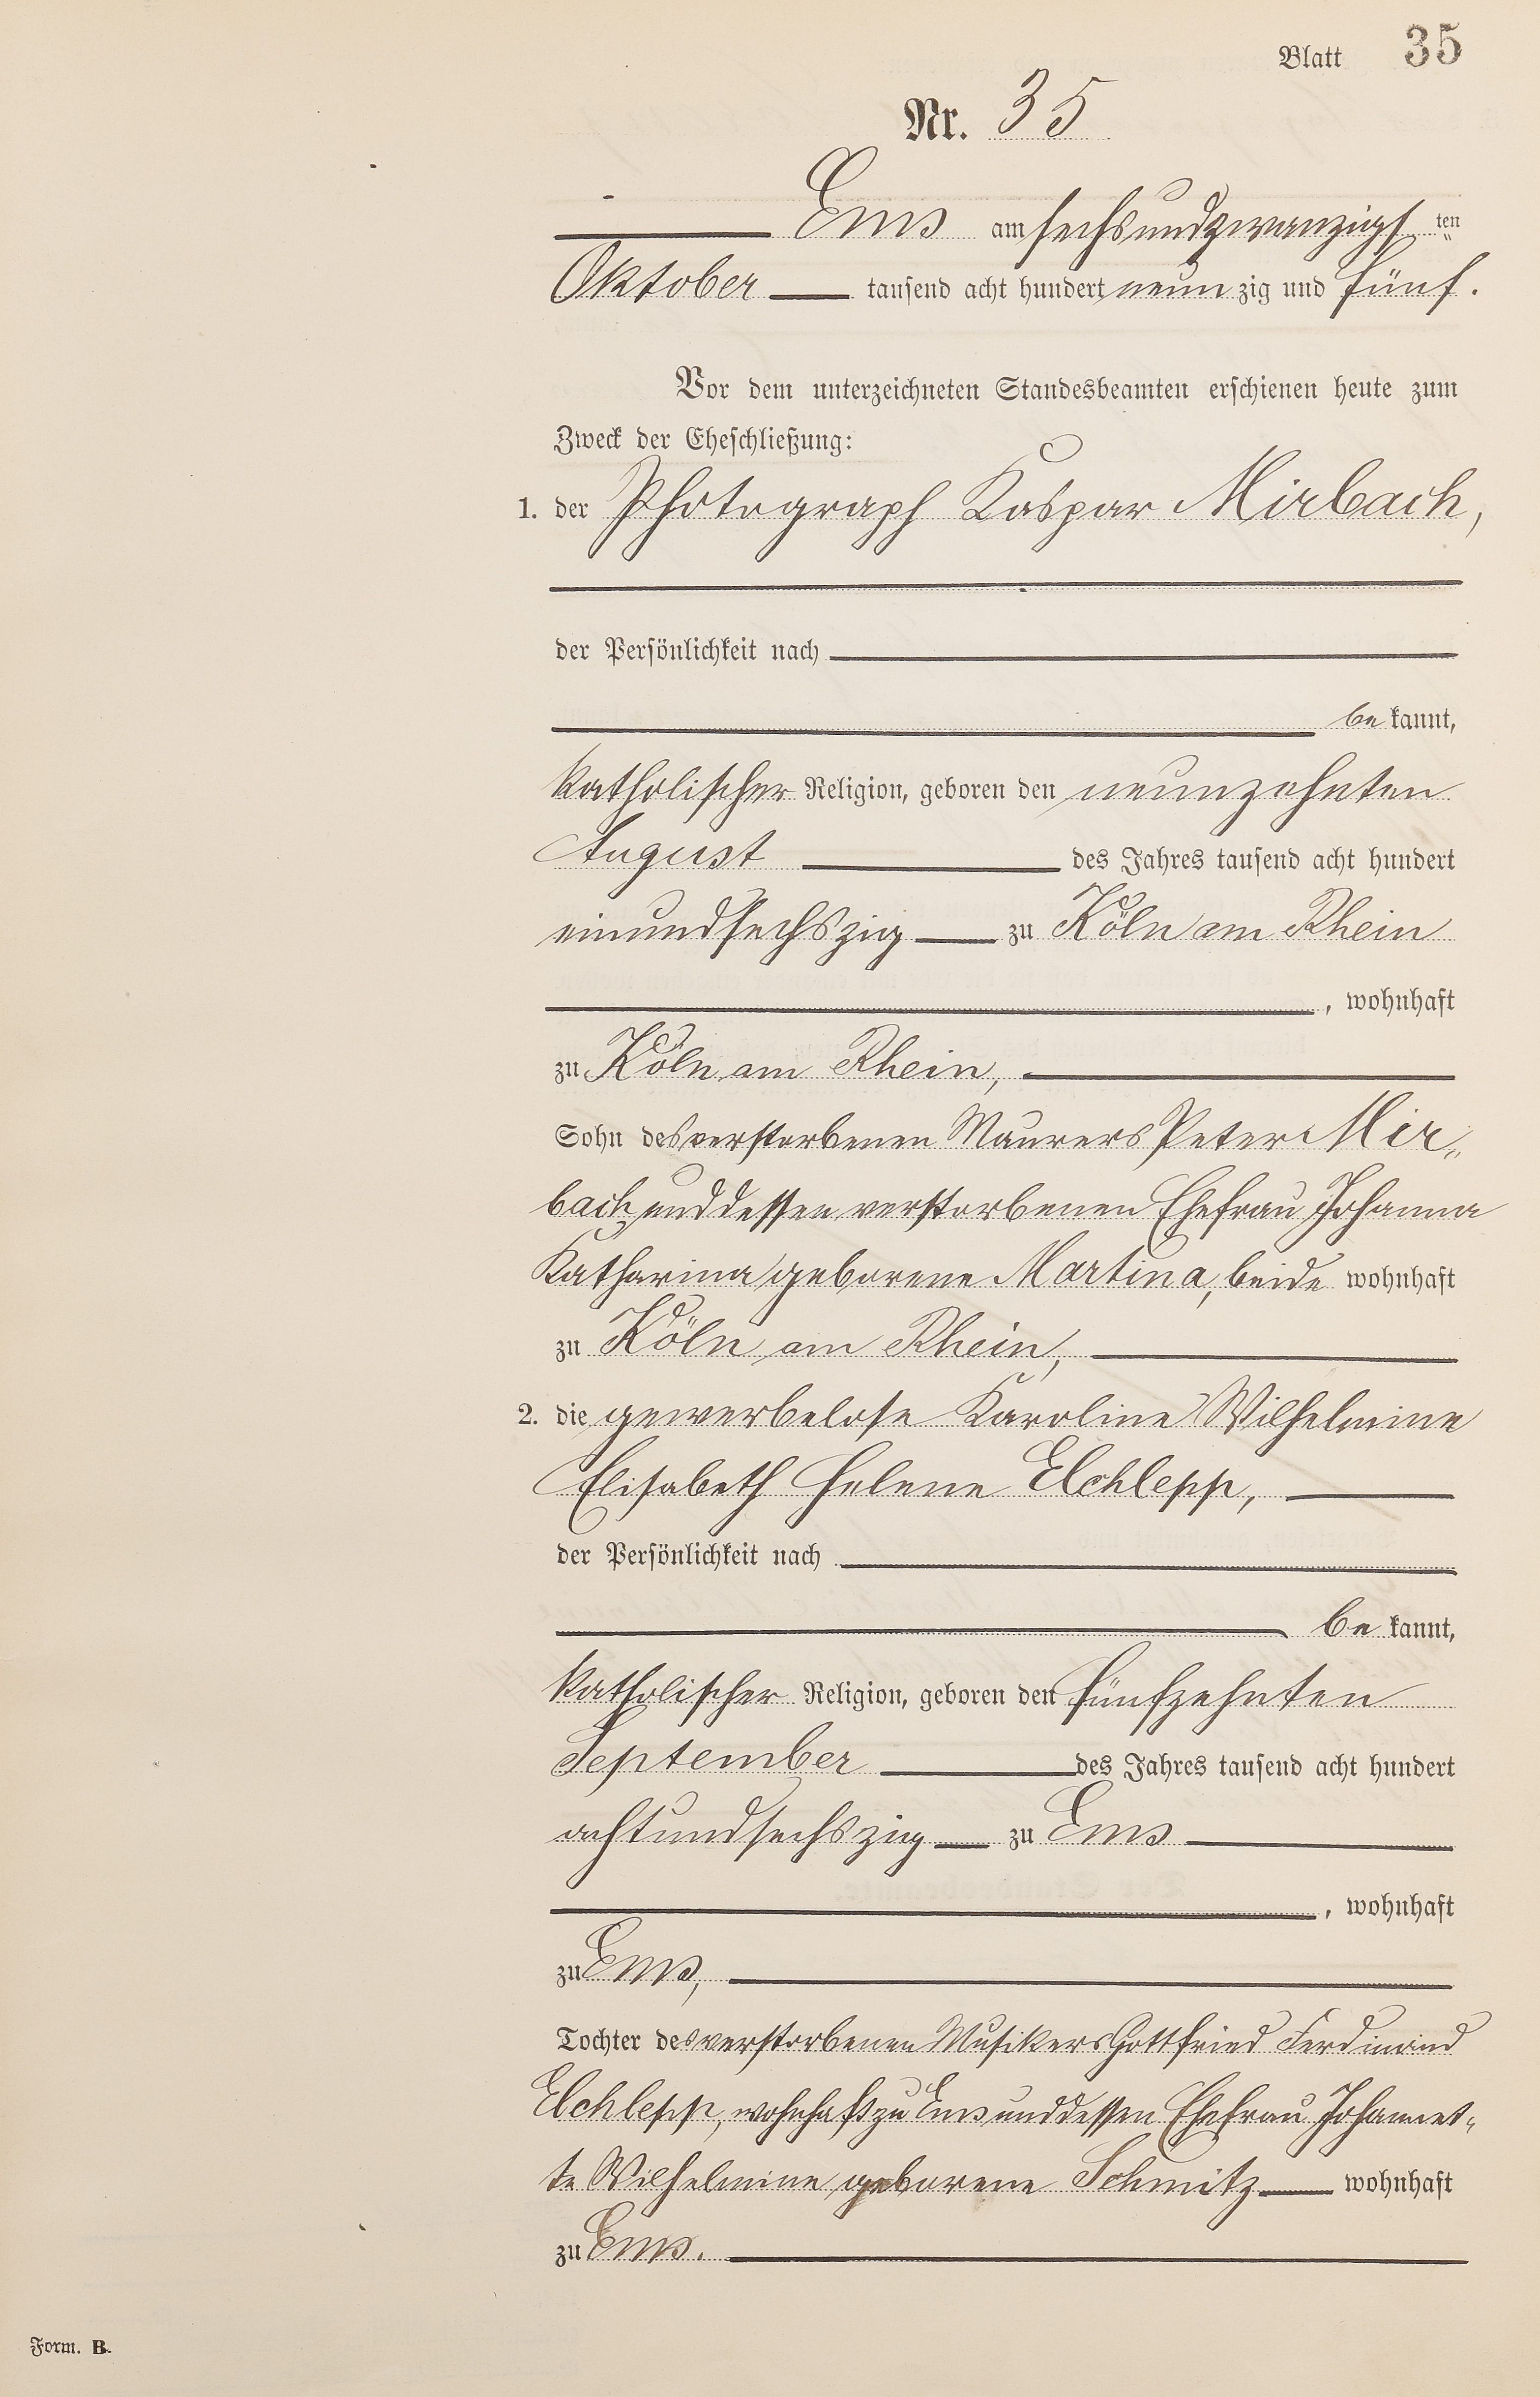 Blatt 35
Nr. 35
Ems am sechsundzwanzigsten
Oktober tausend acht hundert neunzig und fünf.
Vor dem unterzeichneten Standesbeamten erschienen heute zum
Zweck der Eheschließung:
1. der Photograph Kaspar Mirbach,
der Persönlichkeit nach
bekannt,
katholischer Religion, geboren den neunzehnten
August des Jahres tausend acht hundert
einundsechszig zu Köln am Rhein
, wohnhaft
zu Köln am Rhein,
Sohn des verstorbenen Maurers Peter Mir„
bach und dessen verstorbenen Ehefrau Johanna
Katharina geborene Martina, beide wohnhaft
zu Köln am Rhein,
2. die gewerbelose Karoline Wilhelmine
Elisabeth Helene Elchlepp,
der Persönlichkeit nach
bekannt,
katholischer Religion, geboren den fünfzehnten
September des Jahres tausend acht hundert
achtundsechszig zu Ems
, wohnhaft
zu Ems,
Tochter des verstorbenen Musikers Gottfried Ferdinand
Elchlepp, wohnhaft zu Ems und dessen Ehefrau Johannet„
te Wilhelmine geborene Schmitz wohnhaft
zu Ems.
Form. B.